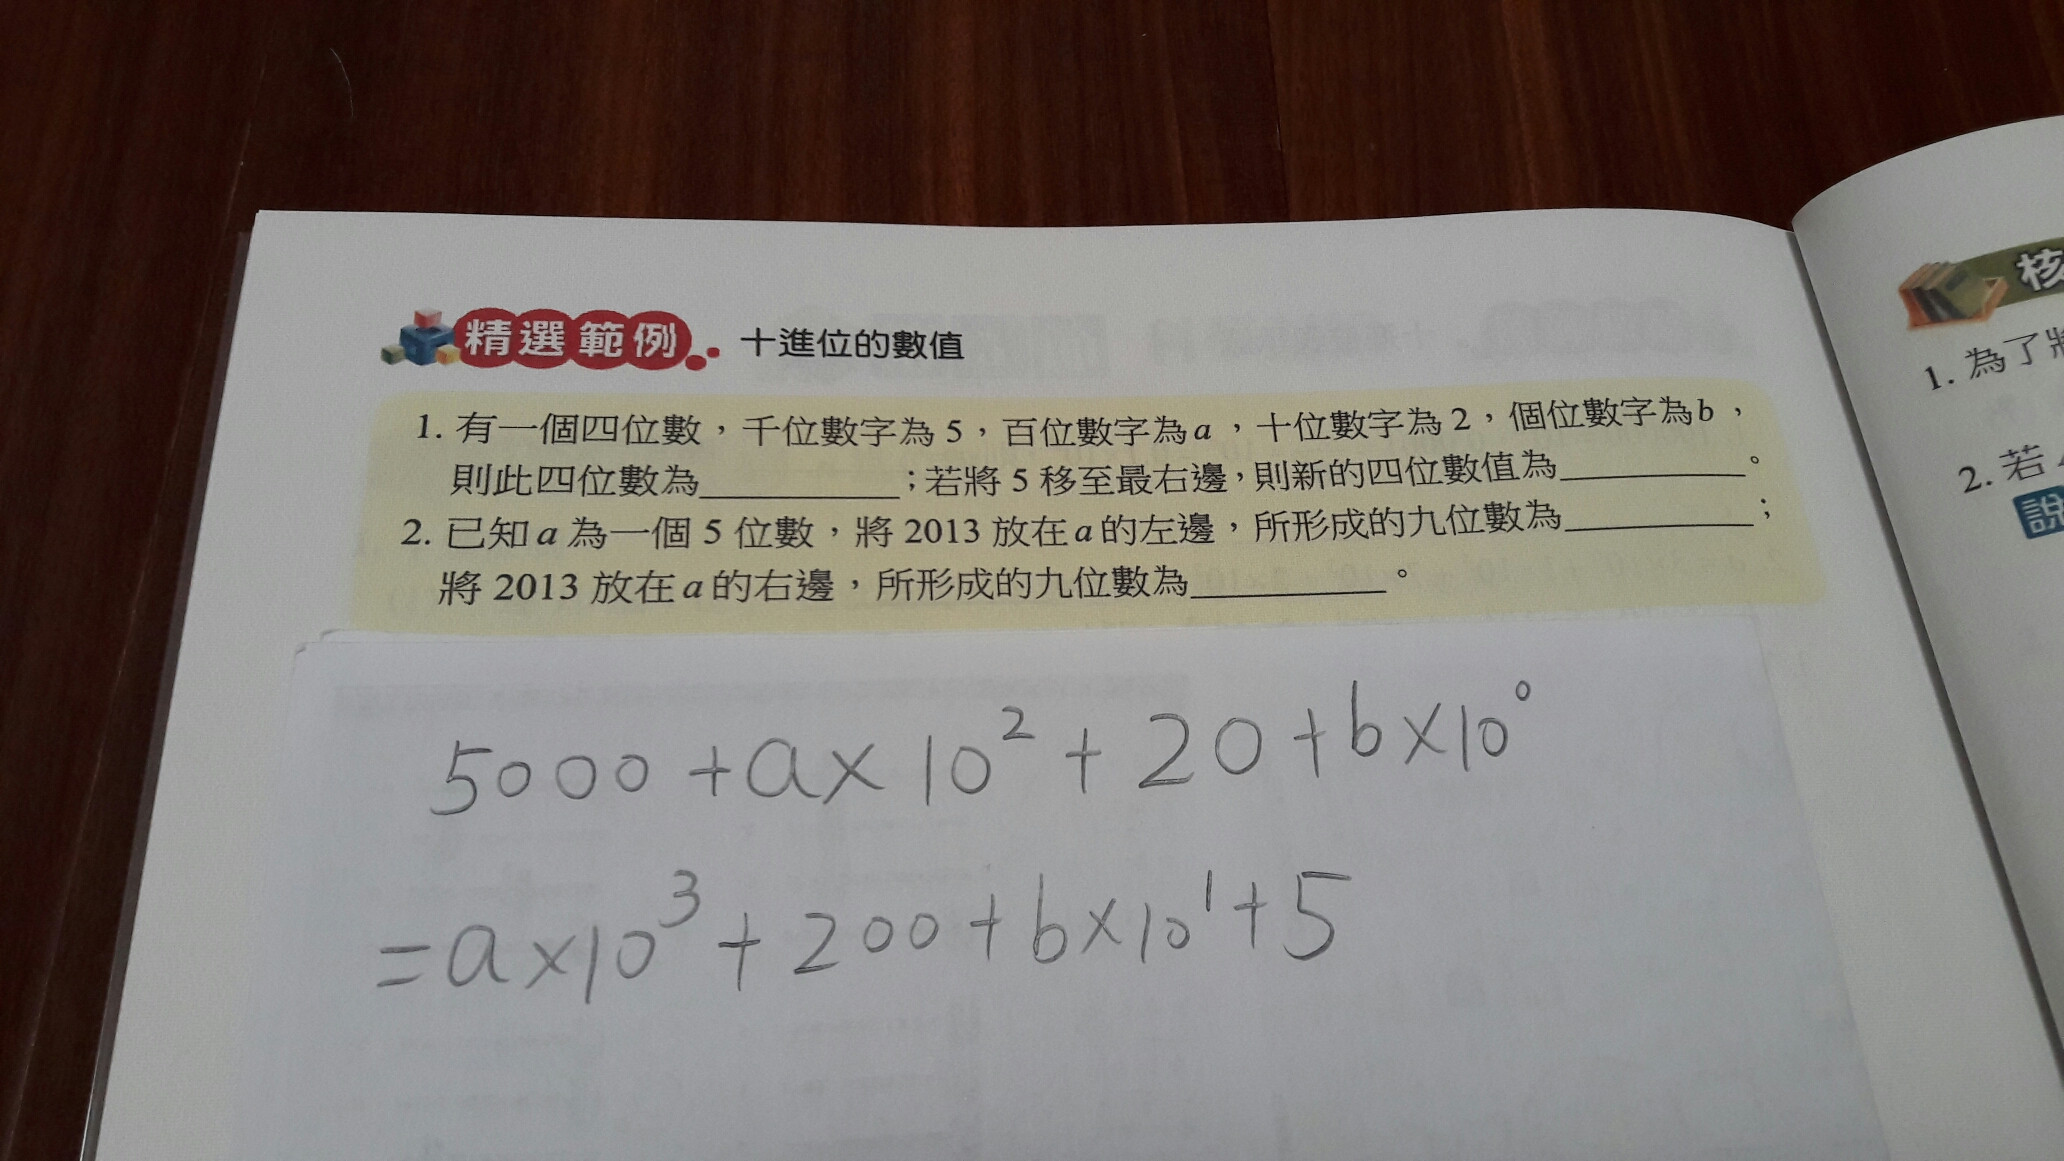 精選範例 十進位的數值
1. 有一個四位數，千位數字為 5，百位數字為 a ，十位數字為 2，個位數字為 b ，
則此四位數為__________；若將 5 移至最右邊，則新的四位數值為__________。
2. 已知 a 為一個 5 位數，將 2013 放在 a 的左邊，所形成的九位數為__________；
將 2013 放在 a 的右邊，所形成的九位數為__________。
5000 + a × 10² + 20 + b × 10⁰
= a × 10³ + 200 + b × 10¹ + 5
核
1. 為了
2. 若
說